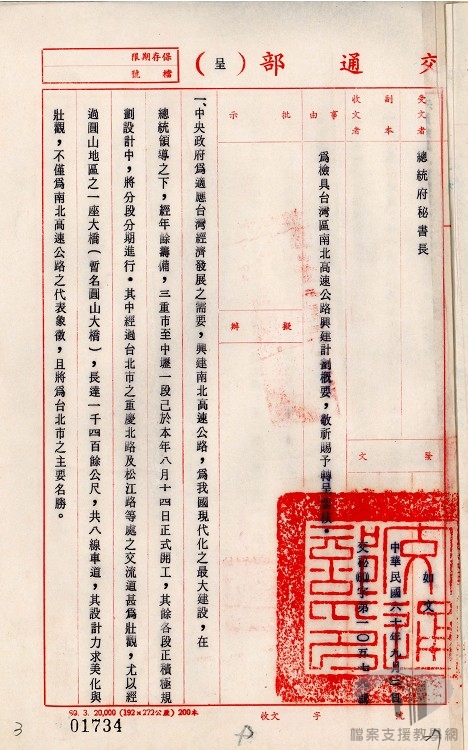 交通部（呈）
保存期限
檔號
受文者
總統府秘書長
副本
收文者
事由
為檢具台灣區南北高速公路興建計劃概要，敬祈賜予轉呈
批示
擬辦
發文
如文
中華民國六十年九月 日
字第一〇五七 號
一、中央政府為適應台灣經濟發展之需要，興建南北高速公路，為我國現代化之最大建設，在
總統領導之下，經年餘籌備，三重市至中壢一段已於本年八月十四日正式開工，其餘各段正積極規
劃設計中，將分段分期進行。其中經過台北市之重慶北路及松江路等處之交流道甚為壯觀，尤以經
過圓山地區之一座大橋（暫名圓山大橋），長達一千四百餘公尺，共八線車道，其設計力求美化與
壯觀，不僅為南北高速公路之代表象徵，且將為台北市之主要名勝。
收文 字 號
59. 3. 20,000 (192×272公厘) 200本
01734
3
檔案支援教學網